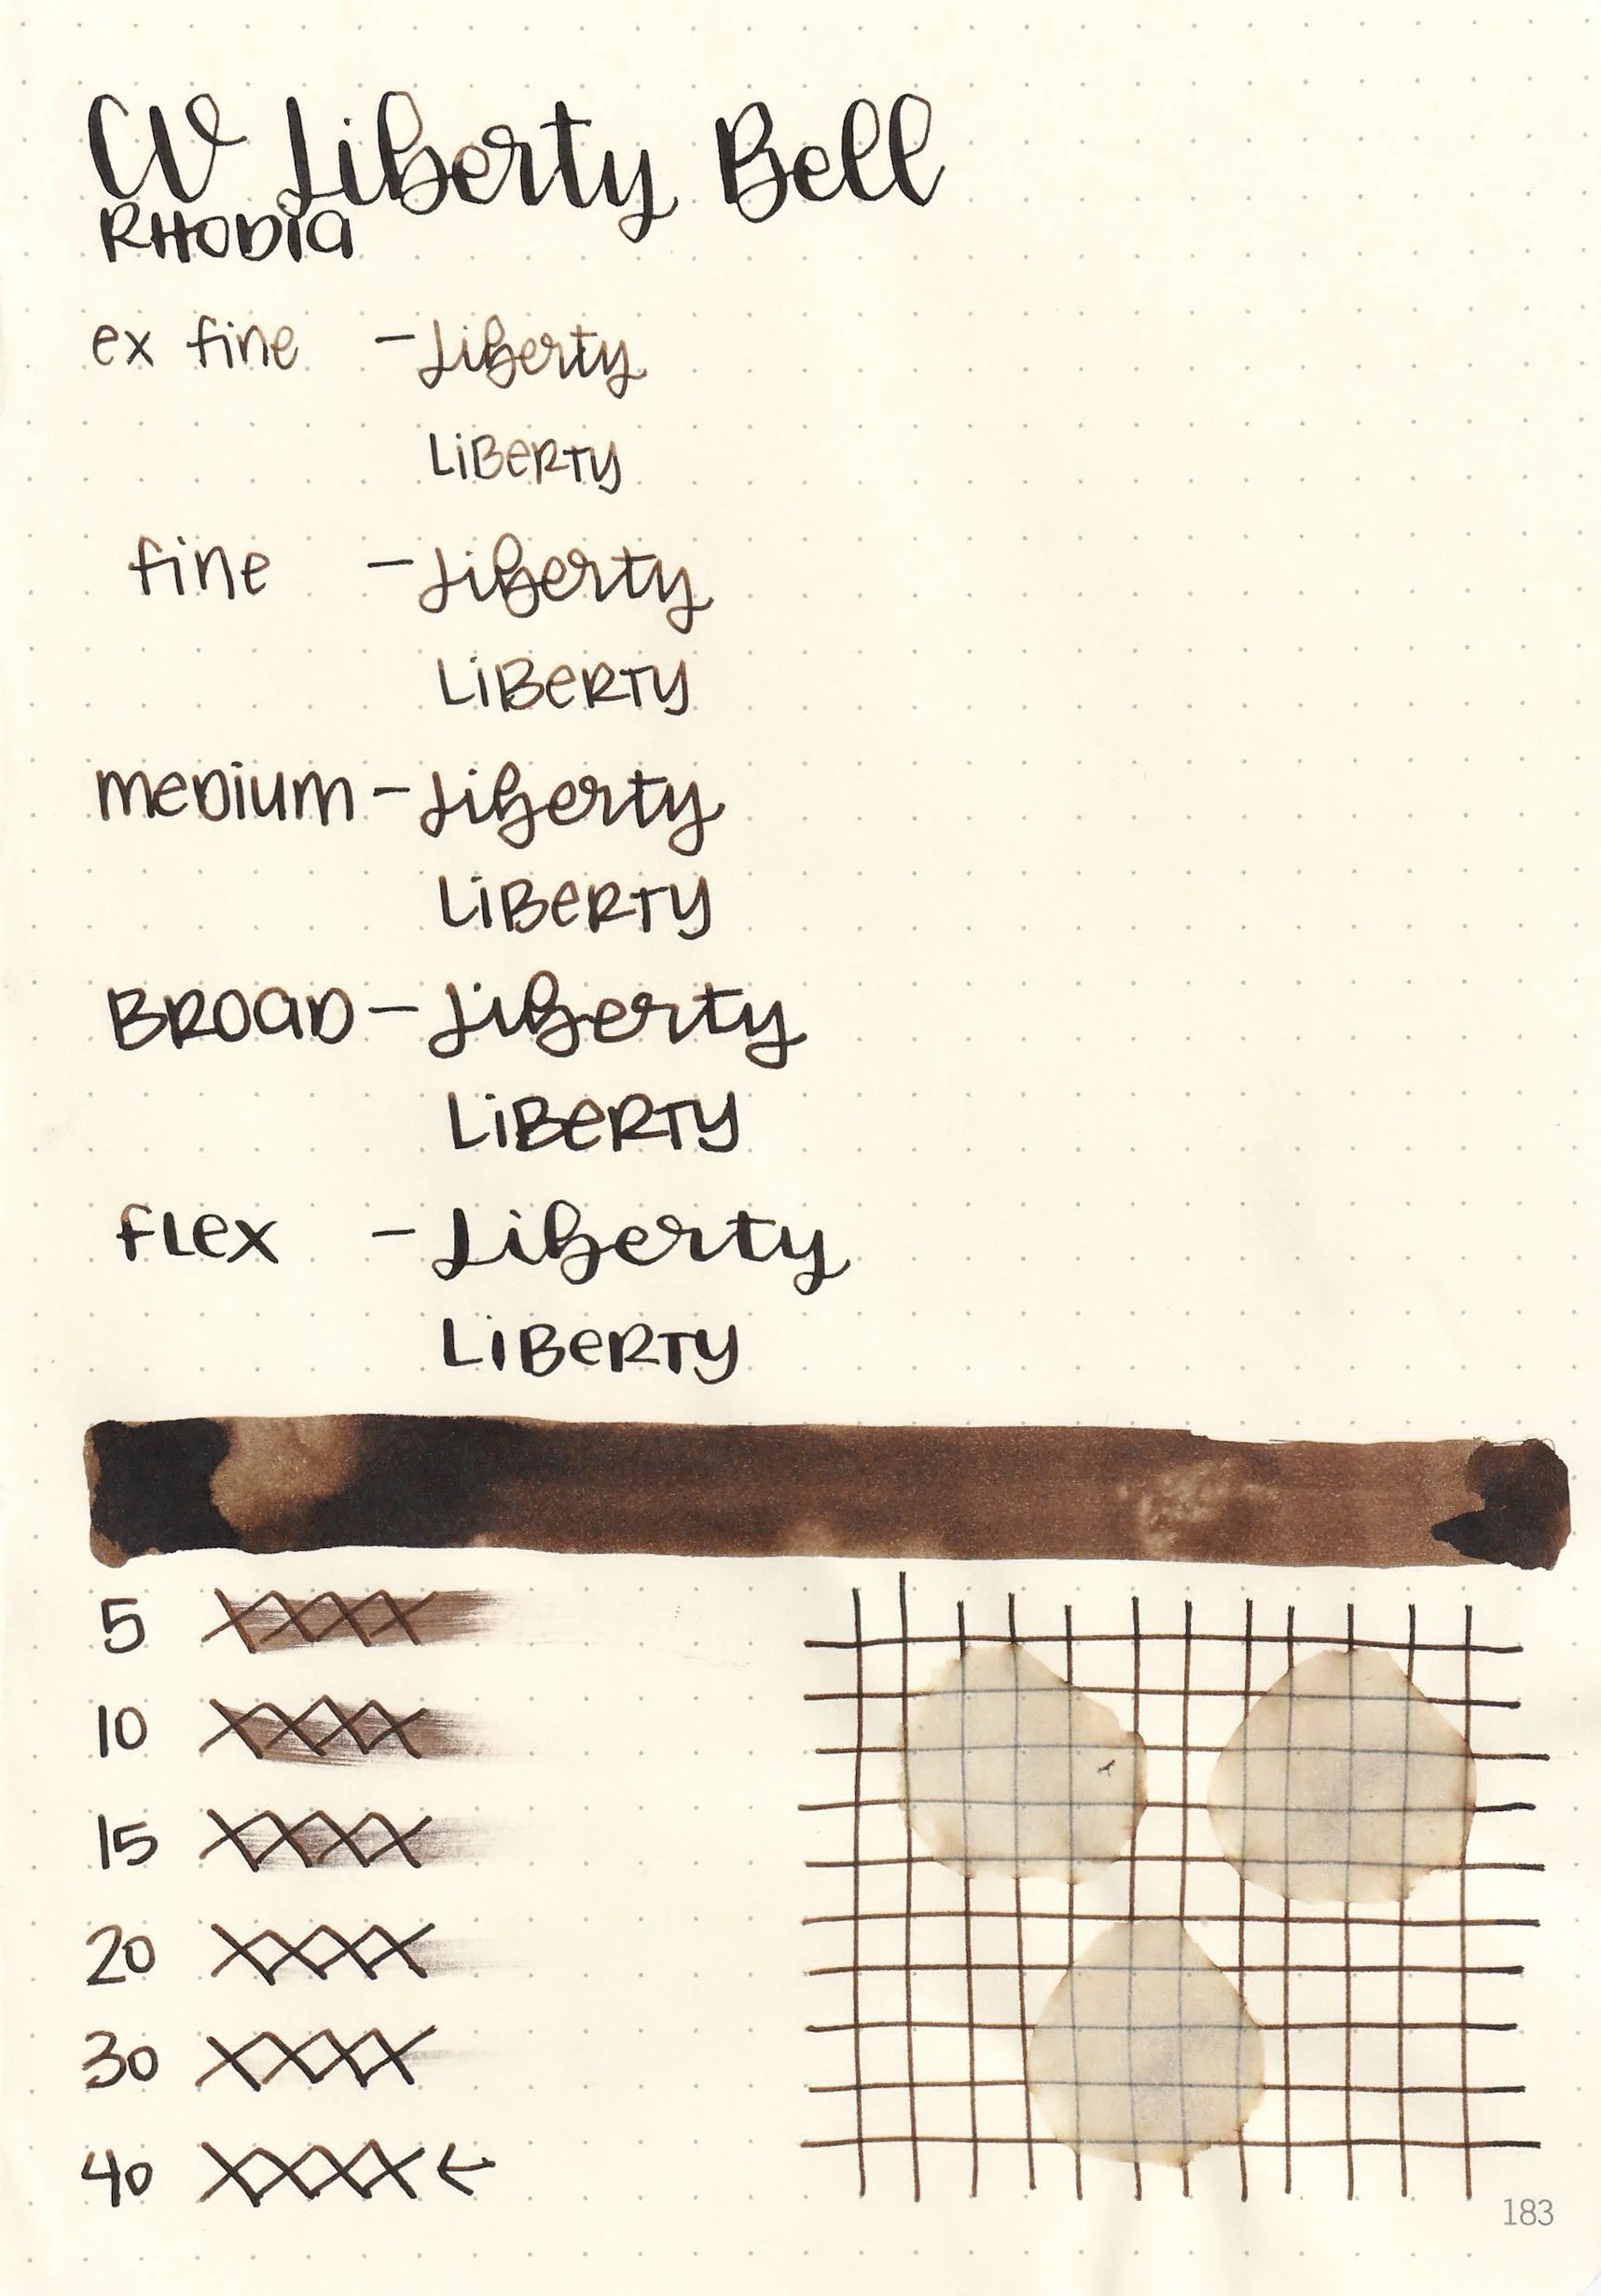 CV Liberty Bell
RHODIA
ex fine - Liberty
LiBeRTY
fine - Liberty
LiBeRTY
meDium - Liberty
LiBeRTY
BROaD - Liberty
LiBeRTY
fLex - Liberty
LiBeRTY
5 XXXX
10 XXXX
15 XXXX
20 XXXX
30 XXXX
40 XXXX ←
183